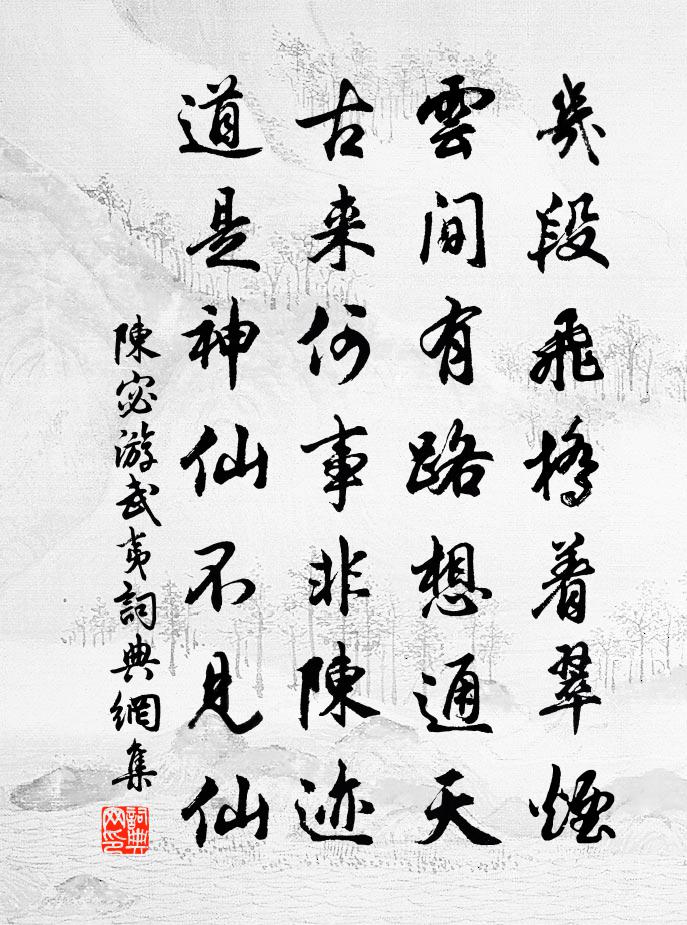 幾段飛橋着翠煙
雲間有路想通天
古来何事非陳迹
道是神仙不見仙
陳宓游武夷詞典網集
詞典網印